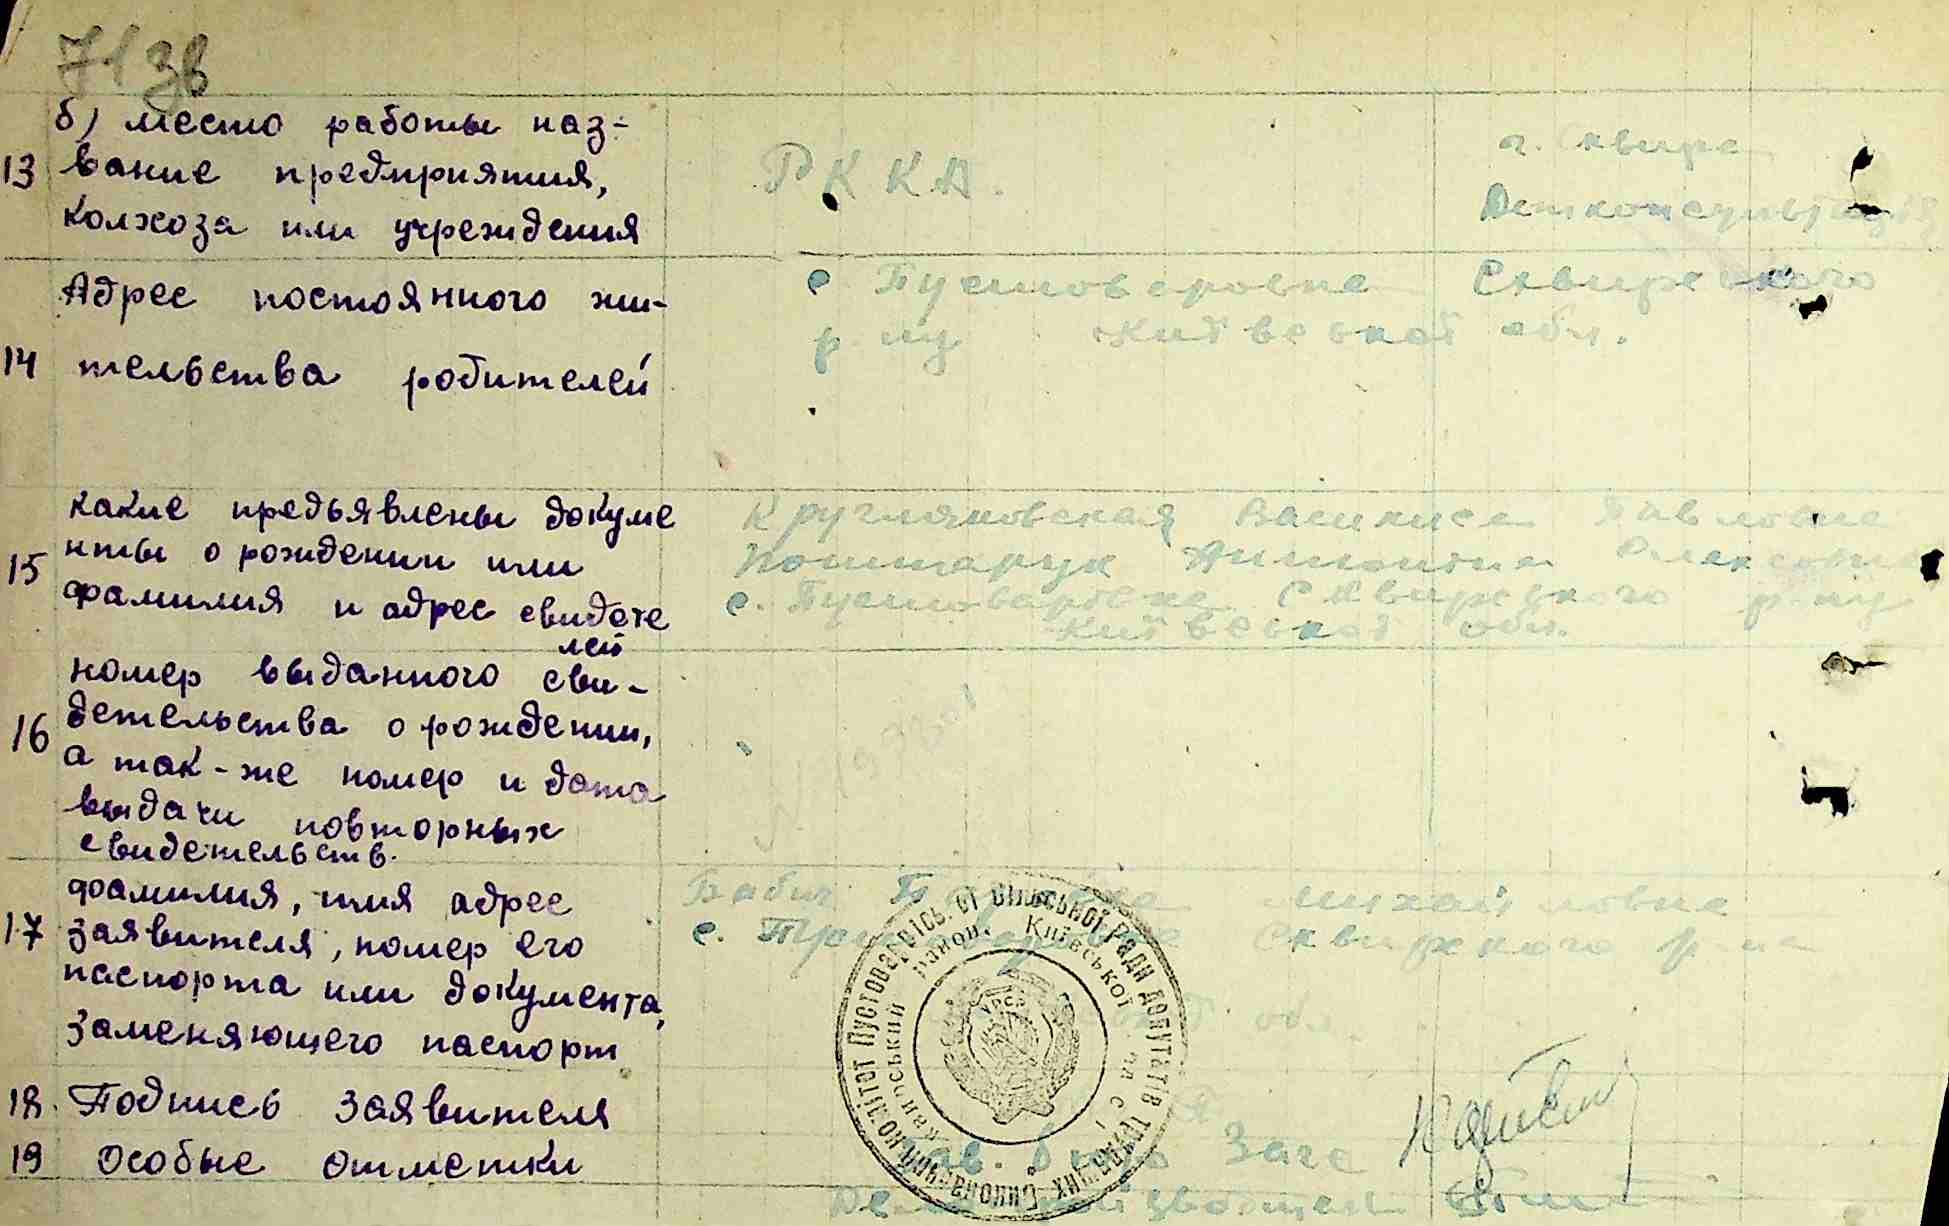 71 зв
б) место работы наз-
13 вание предприятия,
колхоза или учреждения
РККА.
г. Сквира
Детконсультация
Адрес постоянного жи-
14 тельства родителей
с Пустоверовка Сквирського
р-ну Київської обл.
какие предьявлены докуме
15 нты о рождении или
фамилия и адрес свидете
лей
Кругляковская Василиса Павловна
Антонина
с. Пустоваровка Сквирского р-ну
Київської обл.
номер выданного сви-
16 детельства о рождении,
а так-же номер и дата
выдачи повторных
свидетельств.
фамилия, имя адрес
17 заявителя, номер его
паспорта или документа,
заменяющего паспорт
Бабич Михайловна
с. Сквирского р-на
обл
18. Подпись заявителя
19 Особые отметки
Зав. бюро Загс
Виконавчий комітет Пустоварівської сільської ради депутатів трудящих
Сквирський район, Київської області
УРСР